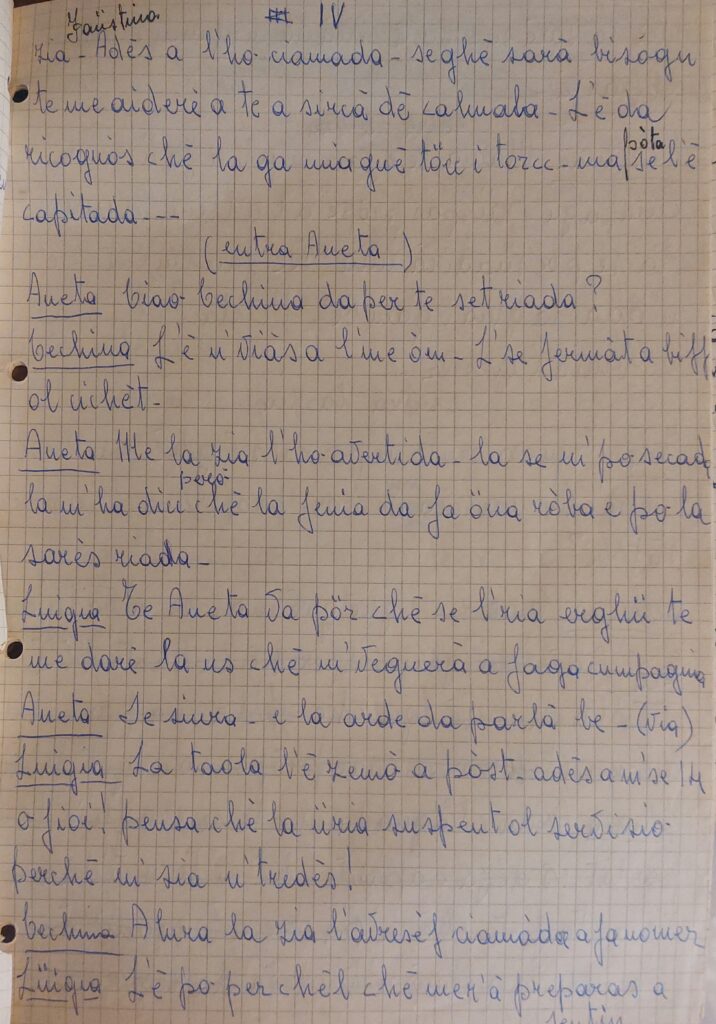 Faüstina # IV
zia - Adès a l'ho ciamada - seghè sarà bisògn
te me aiderè a te a sircà dè calmala - L'è da
ricognòs chè la ga miaguè töcc i torcc - ma pòta se l'è
capitada ---
(entra Aneta)
Aneta Ciao Cechina da per te set riada?
Cechina L'è n'viàs a l'me òm - L'se fermàt a biff
ol cichèt -
Aneta Me la zia l'ho avertida - la se m'po secad
la m'ha dicc però chè la fenia da fa öna ròba e po la
sarès riada -
Luigia Te Aneta va pör chè se l'ria erghü te
me darè la us chè m'vegnerà a faga cumpagnia
Aneta Se siura - e la arde da parlà be - (via)
Luigia La taola l'è zemò a pòst - adès am'se 14
o fioi! pensa chè la üria suspent ol servisio
perchè m'sia n'tredès!
Cechina Alura la zia l'avresèf ciamàda a fa nömer
Lüigia L'è po per chèl chè mer'à preparas a
sentin